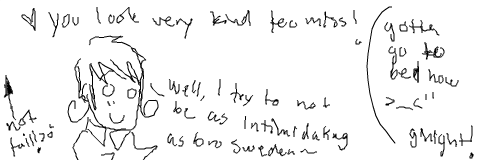 you look very kind too miss!
Well, I try to not
be as intimidating
as bro Sweden~
not
tall!
gotta
go to
bed now
>_<"
gnight!